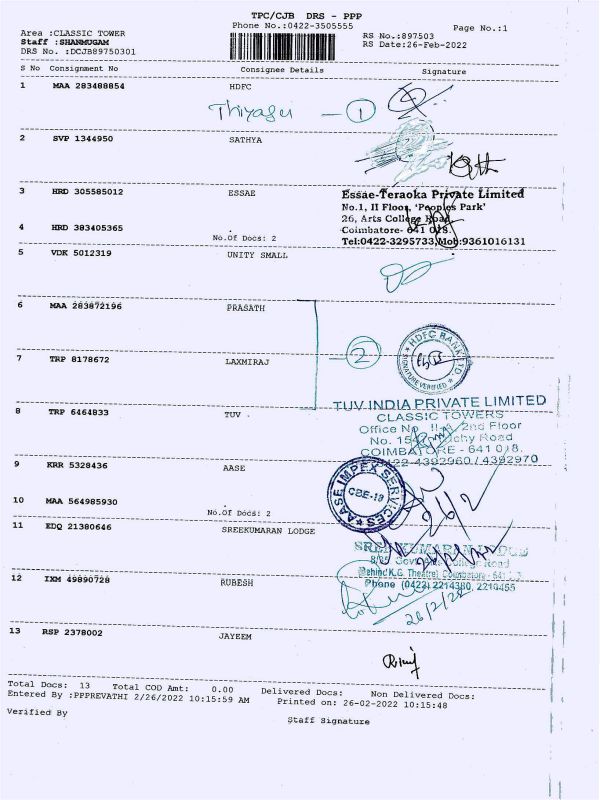 TPC/CJB DRS - PPP
Phone No.:0422-3505555
Page No.:1
Area :CLASSIC TOWER
RS No.:897503
Staff :SHANMUGAM
RS Date:26-Feb-2022
DRS No. :DCJB89750301
S No Consignment No Consignee Details Signature
1 MAA 283488854 HDFC
Thiyagu - 1
2 SVP 1344950 SATHYA
3 HRD 305585012 ESSAE
Essae-Teraoka Private Limited
No.1, II Floor, 'Peoples Park'
26, Arts College Road,
4 HRD 383405365
Coimbatore- 641 018.
No.Of Docs: 2
Tel:0422-3295733,Mob:9361016131
5 VDK 5012319 UNITY SMALL
6 MAA 283872196 PRASATH
2
HDFC BANK LTD
SIGNATURE VERIFIED
7 TRP 8178672 LAXMIRAJ
TUV INDIA PRIVATE LIMITED
8 TRP 6464833 TUV
CLASSIC TOWERS
Office No. 2nd Floor
No. Road
COIMBATORE - 641 018.
4392960 / 4392970
9 KRR 5328436 AASE
AASE IMPEX SERVICES
CBE-18
10 MAA 564985930
No.Of Docs: 2
26/2
11 EDQ 21380646 SREEKUMARAN LODGE
(Behind K.G. Theatre) Coimbatore - 641
12 IXM 49890728 RUBESH
Phone (0422) 2214380, 2210455
26/2/22
13 RSP 2378002 JAYEEM
Total Docs: 13 Total COD Amt: 0.00 Delivered Docs: Non Delivered Docs:
Entered By :PPPREVATHI 2/26/2022 10:15:59 AM Printed on: 26-02-2022 10:15:48
Verified By
Staff Signature